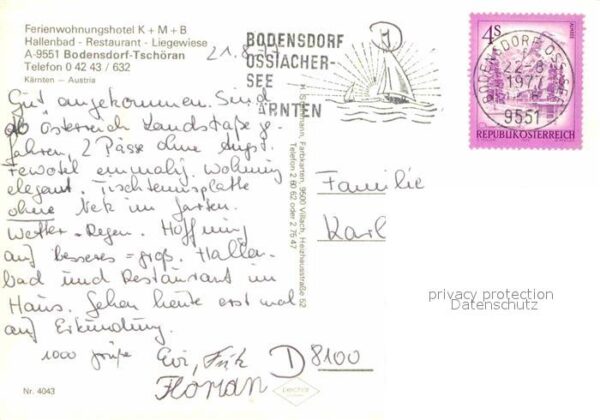 Ferienwohnungshotel K + M + B
Hallenbad - Restaurant - Liegewiese
A-9551 Bodensdorf-Tschöran
Telefon 0 42 43 / 632
Kärnten — Austria
21.8.77
BODENSDORF
OSSIACHER-
SEE
KÄRNTEN
4S
REPUBLIK ÖSTERREICH
BODENSDORF OSSIA
22-8
1977
9551
Gut angekommen. Sind
ab Österreich Landstraße ge-
fahren, 2 Pässe ohne Angst.
einmalig. Wohnung
elegant. Tischtennisplatte
ohne Netz im Garten.
Wetter = Regen. Hoffnung
auf besseres = groß. Hallen-
bad und Restaurant im
Haus. Gehen heute erst mal
auf Erkundung.
1000 Grüße Evi, Fritz
Florian
Familie
Karl
D 8100
Farbkarten, 9500 Villach, Heizhausstraße 52
Telefon 2 60 62 oder 2 75 47
privacy protection
Datenschutz
Nr. 4043